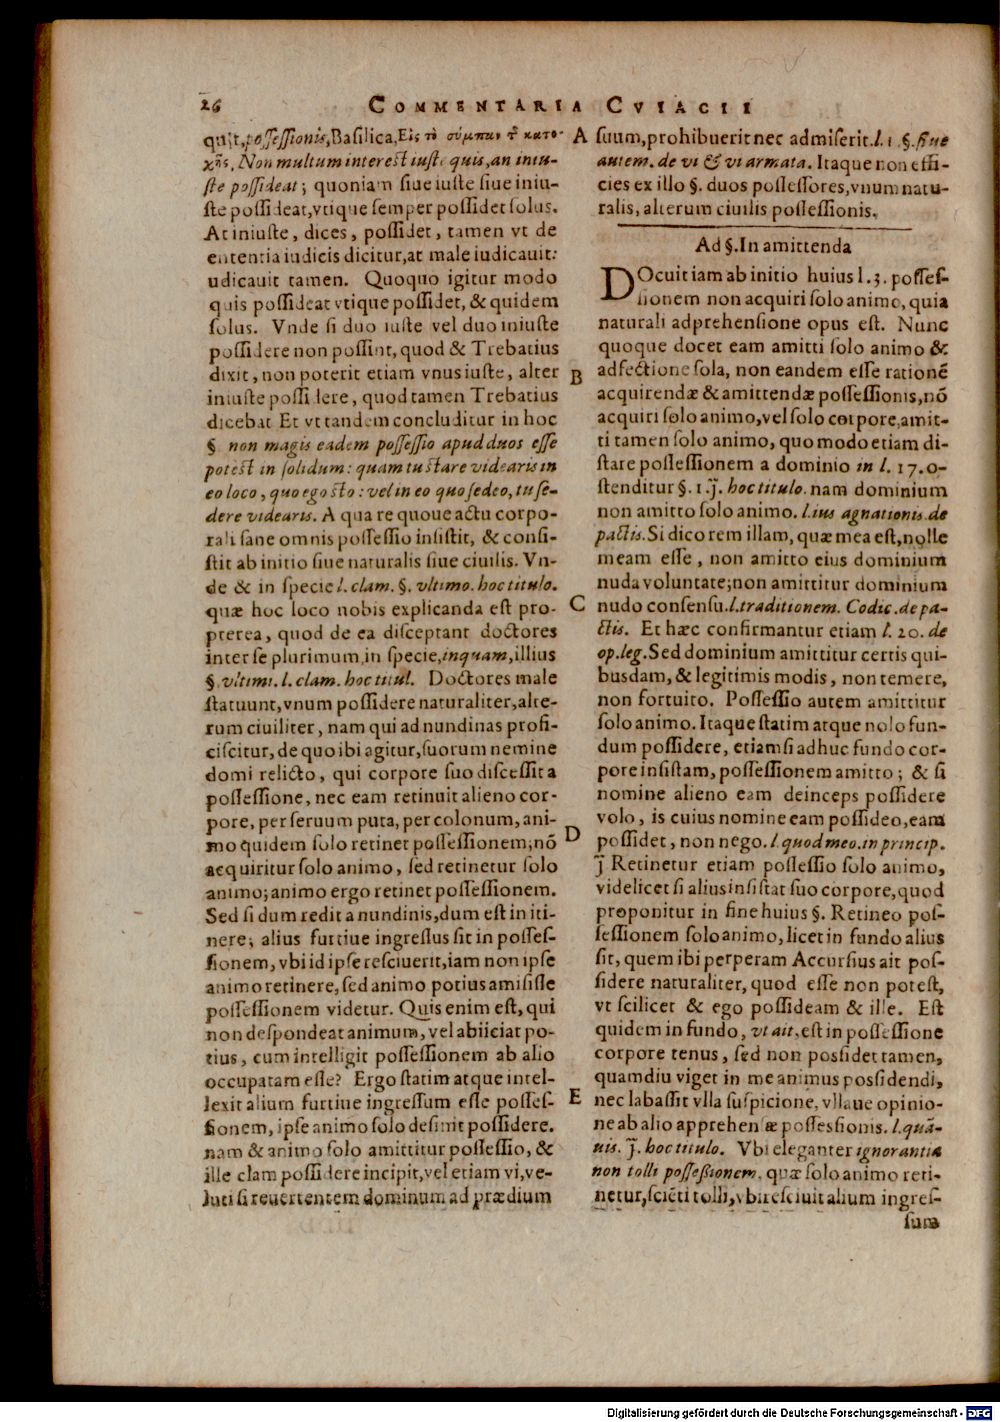 26
COMMENTARIA CVIACII
quit, possessionis, Basilica, Εἰς τὸ σύμπαν τ͂ κατο-
χῆς. Non multum interest iuste quis, an iniu-
ste possideat; quoniam siue iuste siue iniu-
ste possideat, vtique semper possidet solus.
At iniuste, dices, possidet, tamen vt de
ententia iudicis dicitur, at male iudicauit:
udicauit tamen. Quoquo igitur modo
quis possideat vtique possidet, & quidem
solus. Vnde si duo iuste vel duo iniuste
possidere non possint, quod & Trebatius
dixit, non poterit etiam vnus iuste, alter
iniuste possidere, quod tamen Trebatius
dicebat Et vt tandem concluditur in hoc
§ non magis eadem possessio apud duos esse
potest in solidum: quam tu stare videaris in
eo loco, quo ego sto: vel in eo quo sedeo, tu se-
dere videaris. A qua re quoue actu corpo-
rali sane omnis possessio insistit, & consi-
stit ab initio siue naturalis siue ciuilis. Vn-
de & in specie l. clam. §. vltimo. hoc titulo.
quæ hoc loco nobis explicanda est pro-
pterea, quod de ea disceptant doctores
inter se plurimum, in specie, inquam, illius
§. vltimi. l. clam. hoc titul. Doctores male
statuunt, vnum possidere naturaliter, alte-
rum ciuiliter, nam qui ad nundinas profi-
ciscitur, de quo ibi agitur, suorum nemine
domi relicto, qui corpore suo discessit a
possessione, nec eam retinuit alieno cor-
pore, per seruum puta, per colonum, ani-
mo quidem solo retinet possessionem; nō
acquiritur solo animo, sed retinetur solo
animo; animo ergo retinet possessionem.
Sed si dum redit a nundinis, dum est in iti-
nere; alius furtiue ingressus sit in posses-
sionem, vbi id ipse resciuerit, iam non ipse
animo retinere, sed animo potius amisisse
possessionem videtur. Quis enim est, qui
non despondeat animum, vel abiiciat po-
tius, cum intelligit possessionem ab alio
occupatam esse? Ergo statim atque intel-
lexit alium furtiue ingressum esse posses-
sionem, ipse animo solo desinit possidere.
nam & animo solo amittitur possessio, &
ille clam possidere incipit, vel etiam vi, ve-
luti si reuertentem dominum ad prædium
A
B
C
D
E
suum, prohibuerit nec admiserit. l. 1. §. siue
autem. de vi & vi armata. Itaque non effi-
cies ex illo §. duos possessores, vnum natu-
ralis, alterum ciuilis possessionis.
Ad §. In amittenda
DOcuit iam ab initio huius l. 3. posses-
sionem non acquiri solo animo, quia
naturali adprehensione opus est. Nunc
quoque docet eam amitti solo animo &
adfectione sola, non eandem esse rationē
acquirendæ & amittendæ possessionis, nō
acquiri solo animo, vel solo corpore, amit-
ti tamen solo animo, quo modo etiam di-
stare possessionem a dominio in l. 17. o-
stenditur §. 1. J. hoc titulo. nam dominium
non amitto solo animo. l. ius agnationis. de
pactis. Si dico rem illam, quæ mea est, nolle
meam esse, non amitto eius dominium
nuda voluntate; non amittitur dominium
nudo consensu. l. traditionem. Codic. de pa-
ctis. Et hæc confirmantur etiam l. 20. de
op. leg. Sed dominium amittitur certis qui-
busdam, & legitimis modis, non temere,
non fortuito. Possessio autem amittitur
solo animo. Itaque statim atque nolo fun-
dum possidere, etiamsi adhuc fundo cor-
pore insistam, possessionem amitto; & si
nomine alieno eam deinceps possidere
volo, is cuius nomine eam possideo, eam
possidet, non nego. l. quod meo. in princip.
J Retinetur etiam possessio solo animo,
videlicet si alius insistat suo corpore, quod
proponitur in fine huius §. Retineo pos-
sessionem solo animo, licet in fundo alius
sit, quem ibi perperam Accursius ait pos-
sidere naturaliter, quod esse non potest,
vt scilicet & ego possideam & ille. Est
quidem in fundo, vt ait, est in possessione
corpore tenus, sed non possidet tamen,
quamdiu viget in me animus possidendi,
nec labassit vlla suspicione, vllaue opinio-
ne ab alio apprehensæ possessionis. l. quā-
uis. J. hoc titulo. Vbi eleganter ignorantia
non tolli possessionem, quæ solo animo reti-
netur, sciēti tolli, vbi resciuit alium ingres-
sum
Digitalisierung gefördert durch die Deutsche Forschungsgemeinschaft - DFG